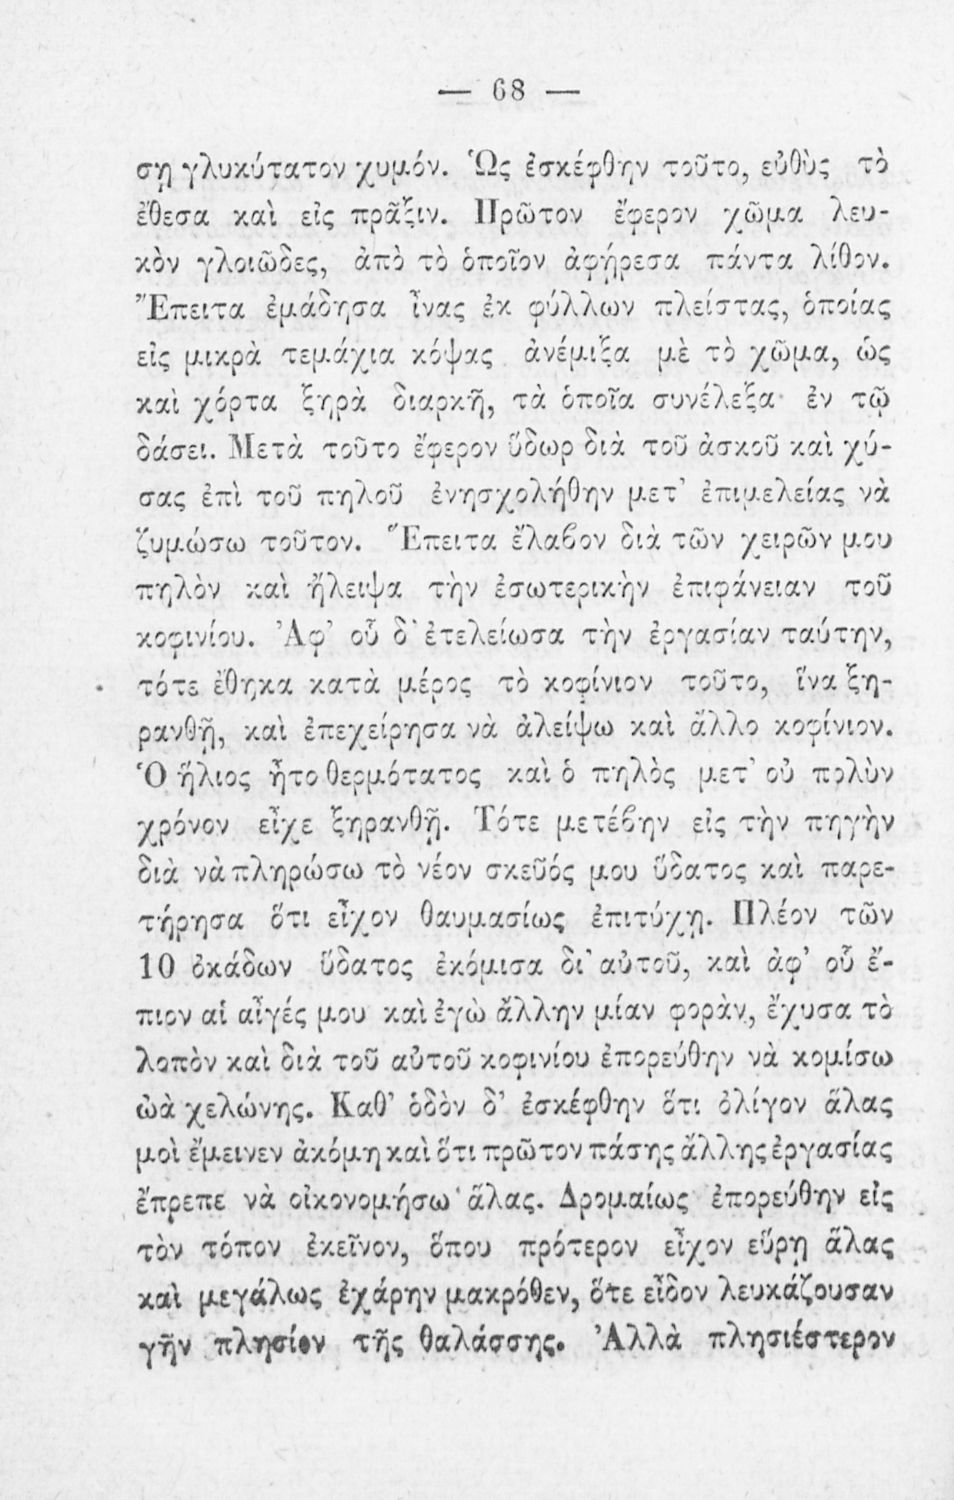 — 68 —
σῃ γλυκύτατον χυμόν. Ὡς ἐσκέφθην τοῦτο, εὐθὺς τὸ
ἔθεσα καὶ εἰς πρᾶξιν. Πρῶτον ἔφερον χῶμα λευ-
κὸν γλοιῶδες, ἀπὸ τὸ ὁποῖον ἀφῄρεσα πάντα λίθον.
Ἔπειτα ἐμάδησα ἶνας ἐκ φύλλων πλείστας, ὁποίας
εἰς μικρὰ τεμάχια κόψας ἀνέμιξα μὲ τὸ χῶμα, ὡς
καὶ χόρτα ξηρὰ διαρκῆ, τὰ ὁποῖα συνέλεξα ἐν τῷ
δάσει. Μετὰ τοῦτο ἔφερον ὕδωρ διὰ τοῦ ἀσκοῦ καὶ χύ-
σας ἐπὶ τοῦ πηλοῦ ἐνησχολήθην μετ’ ἐπιμελείας νὰ
ζυμώσω τοῦτον. Ἕπειτα ἔλαβον διὰ τῶν χειρῶν μου
πηλὸν καὶ ἤλειψα τὴν ἐσωτερικὴν ἐπιφάνειαν τοῦ
κοφινίου. Ἀφ’ οὗ δ’ ἐτελείωσα τὴν ἐργασίαν ταύτην,
τότε ἔθηκα κατὰ μέρος τὸ κοφίνιον τοῦτο, ἵνα ξη-
ρανθῇ, καὶ ἐπεχείρησα νὰ ἀλείψω καὶ ἄλλο κοφίνιον.
Ὁ ἥλιος ἦτο θερμότατος καὶ ὁ πηλὸς μετ’ οὐ πολὺν
χρόνον εἶχε ξηρανθῇ. Τότε μετέβην εἰς τὴν πηγὴν
διὰ νὰ πληρώσω τὸ νέον σκεῦός μου ὕδατος καὶ παρε-
τήρησα ὅτι εἶχον θαυμασίως ἐπιτύχῃ. Πλέον τῶν
10 ὀκάδων ὕδατος ἐκόμισα δι’ αὐτοῦ, καὶ ἀφ’ οὗ ἔ-
πιον αἱ αἶγές μου καὶ ἐγὼ ἄλλην μίαν φορὰν, ἔχυσα τὸ
λοπὸν καὶ διὰ τοῦ αὐτοῦ κοφινίου ἐπορεύθην νὰ κομίσω
ὠὰ χελώνης. Καθ’ ὁδὸν δ’ ἐσκέφθην ὅτι ὀλίγον ἅλας
μοὶ ἔμεινεν ἀκόμη καὶ ὅτι πρῶτον πάσης ἄλλης ἐργασίας
ἔπρεπε νὰ οἰκονομήσω ἅλας. Δρομαίως ἐπορεύθην εἰς
τὸν τόπον ἐκεῖνον, ὅπου πρότερον εἶχον εὕρῃ ἅλας
καὶ μεγάλως ἐχάρην μακρόθεν, ὅτε εἶδον λευκάζουσαν
γῆν πλησίον τῆς θαλάσσης. Ἀλλὰ πλησιέστερον